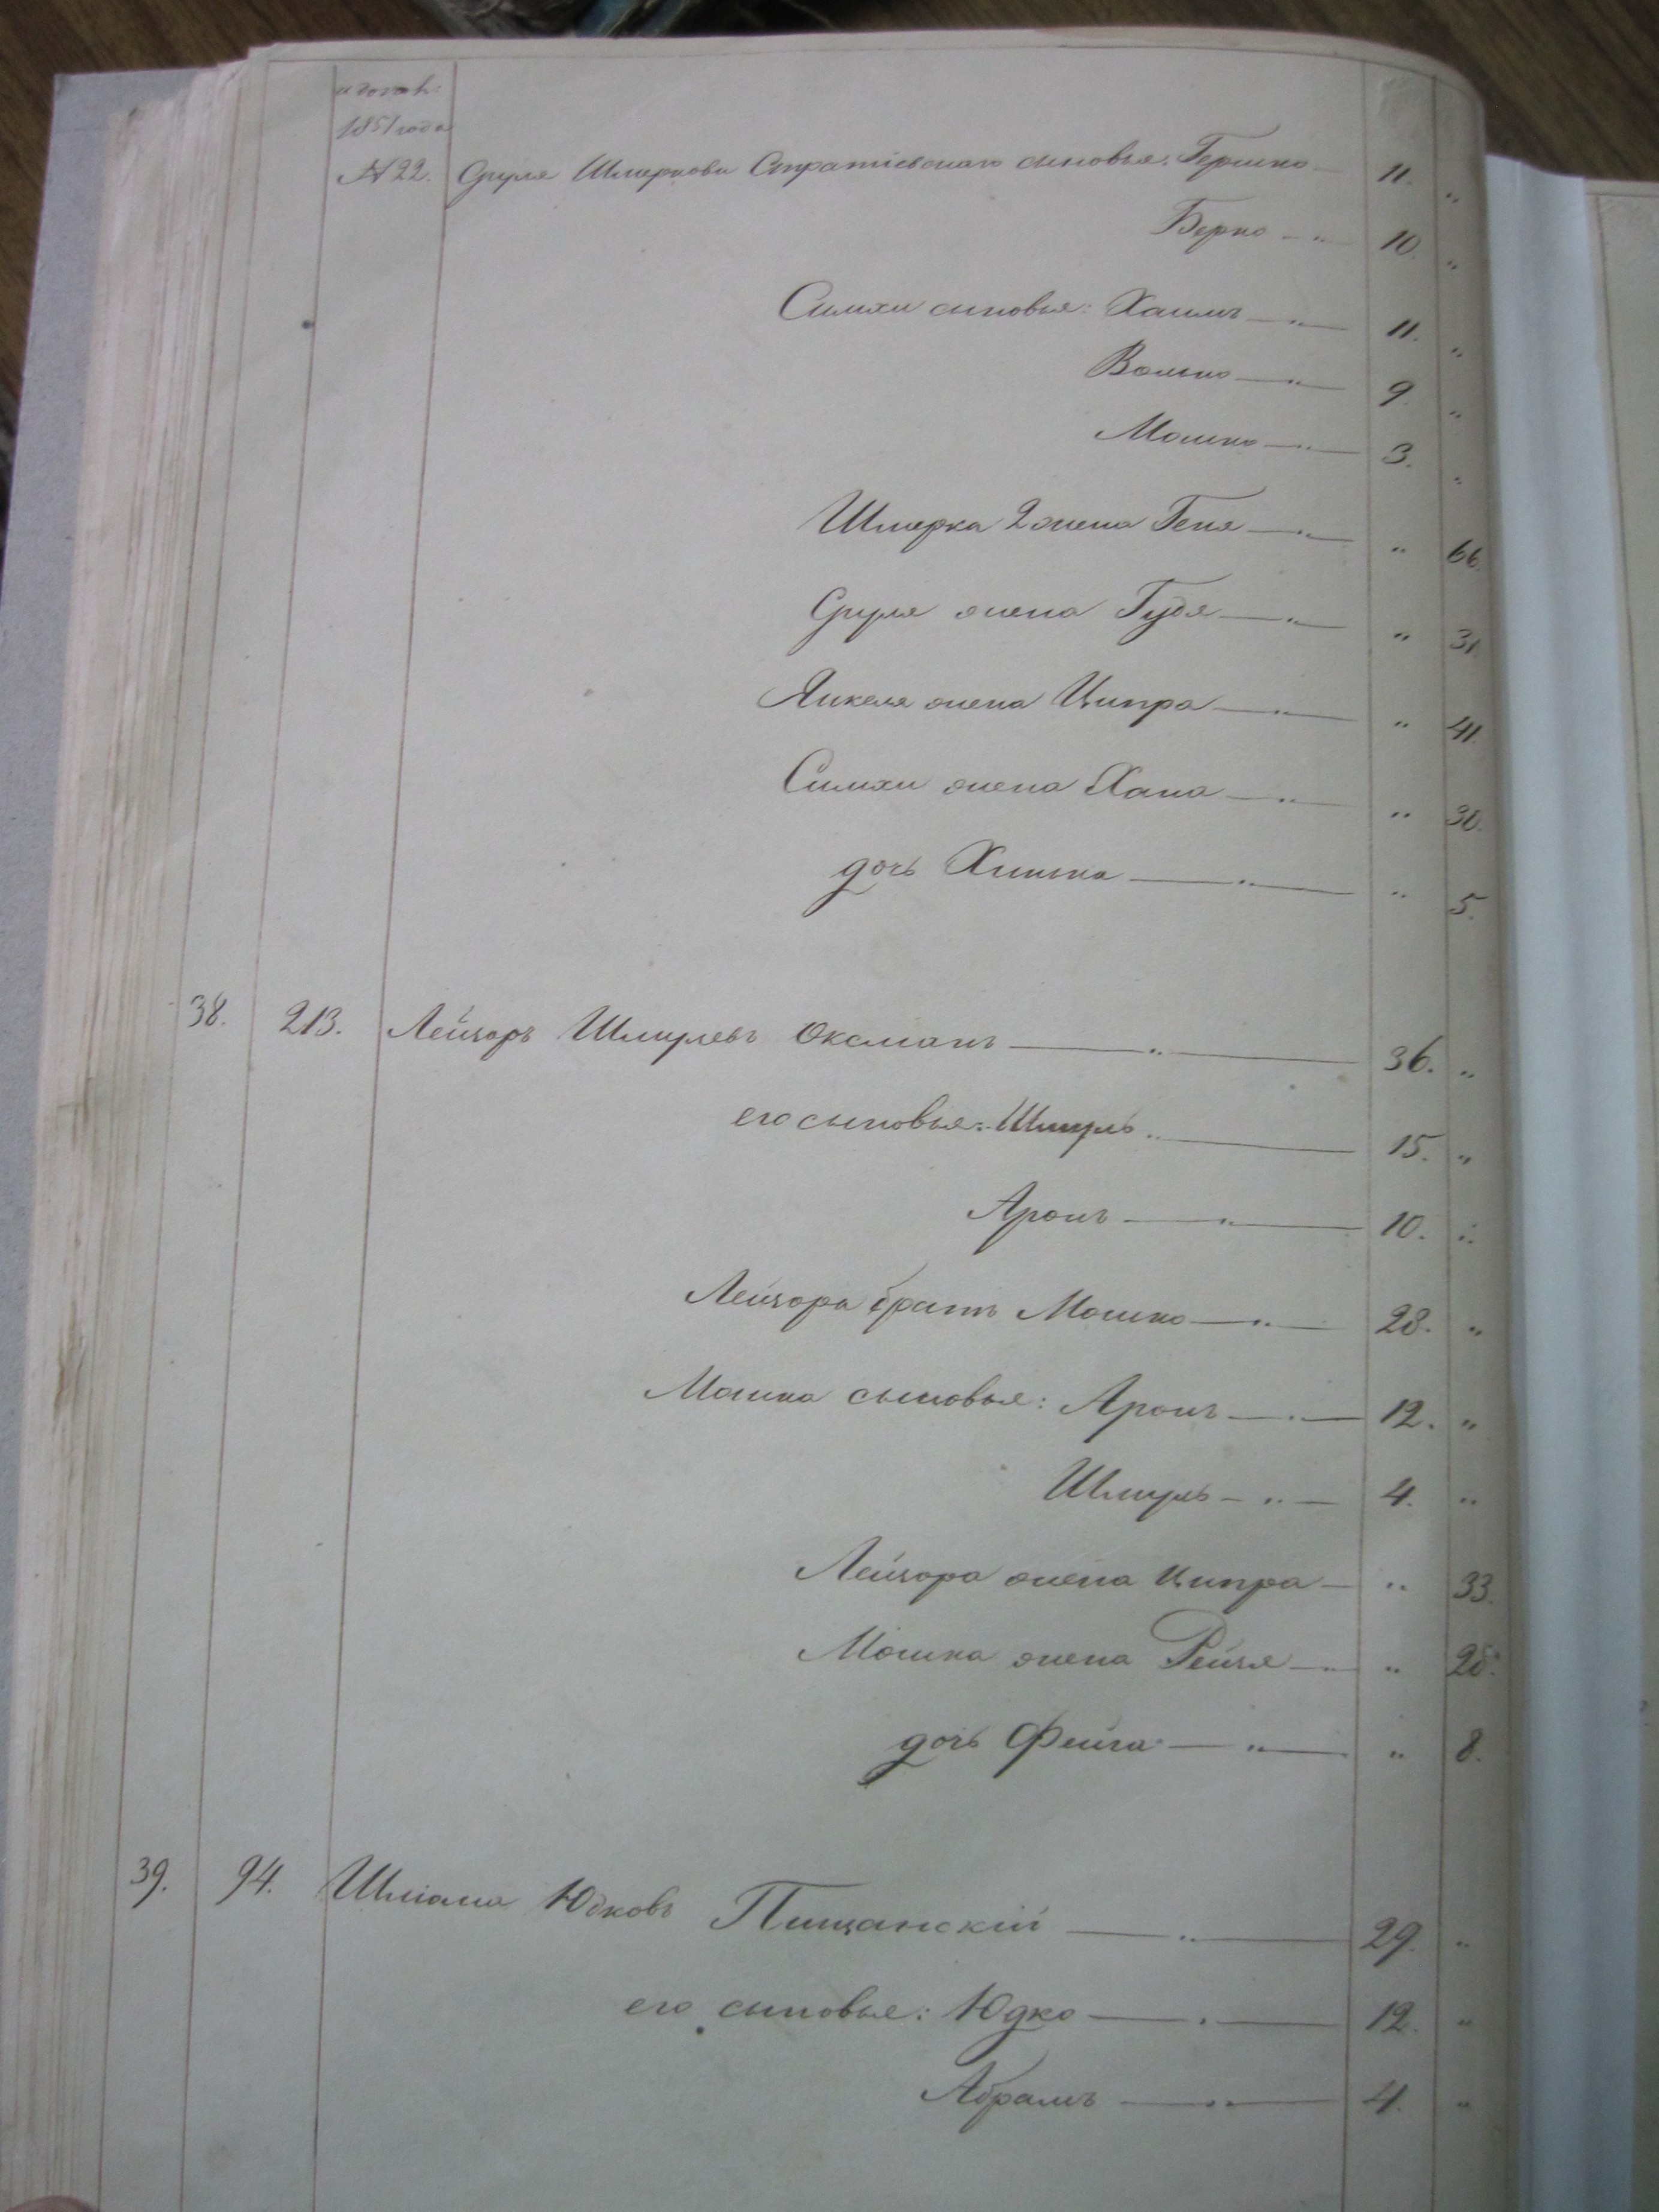 и допол:
1851 года
№ 22. Сруля Шмеркови Стратіевскаго сыновья: Гершко — 11. „
Берко — „ — 10. „
Симхи сыновья: Хаимъ — „ — 11. „
Волько — „ — 9. „
Мошко — „ — 3. „
Шмерка 2 жена Геня — „ — „ 66.
Сруля жена Гудя — „ — „ 31.
Янкеля жена Ципра — „ — „ 41.
Симхи жена Хана — „ — „ 30.
дочь Химка — „ — „ 5.
38. 213. Лейзоръ Шмулевъ Оксманъ — „ — 36. „
его сыновья: Шмуль „ — 15. „
Аронъ — „ — 10. „
Лейзора братъ Мошко — „ — 28. „
Мошка сыновья: Аронъ — „ — 12. „
Шмуль — „ — 4. „
Лейзора жена Ципра — „ 33.
Мошка жена Рейзя — „ — „ 28.
дочь Фейга — „ — „ 8.
39. 94. Шліома Юдковъ Пищанскій — „ — 29. „
его сыновья: Юдко — „ — 12. „
Абрамъ — „ — 4. „